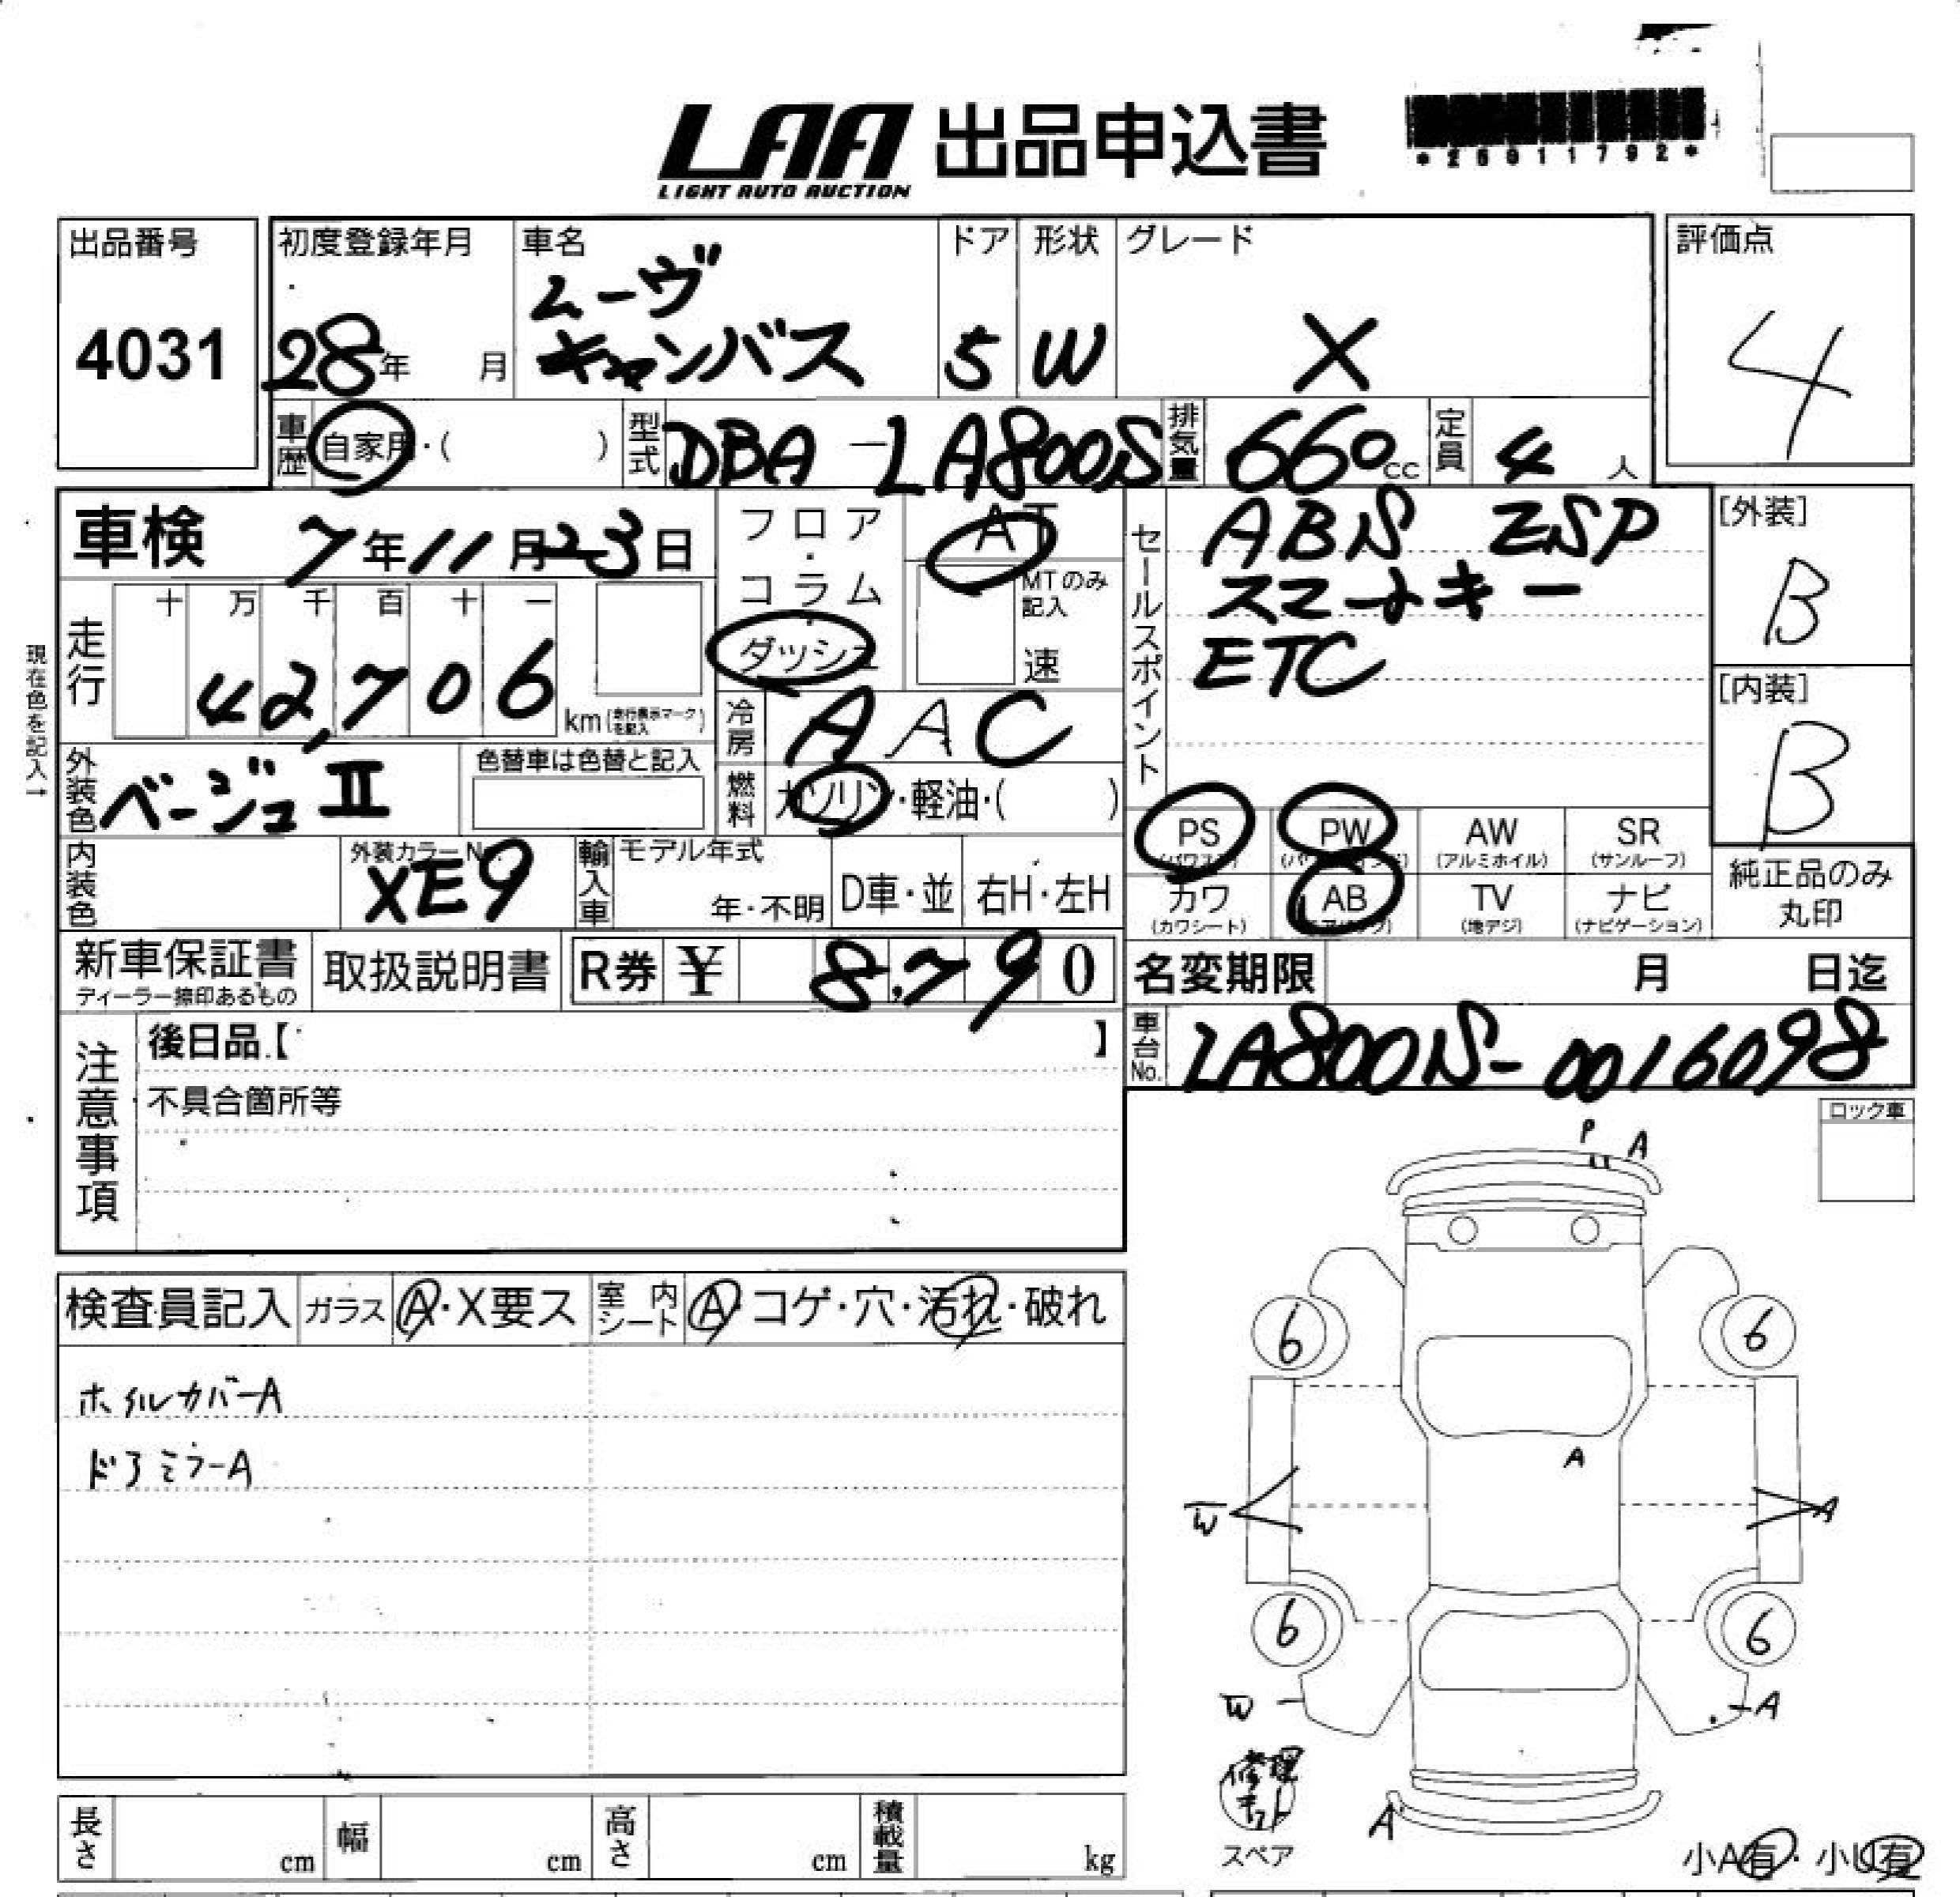 LAA 出品申込書
LIGHT AUTO AUCTION
*25011792*
出品番号
4031
初度登録年月
28年 月
車名
ムーヴ
キャンバス
ドア
5
形状
W
グレード
X
評価点
4
車歴 自家用・( )
型式 DBA-LA800S
排気量 660cc
定員 4人
車検 7年11月23日
フロア・コラム・ダッシュ
AT
MTのみ記入
速
セールスポイント
ABS ESP
スマートキー
ETC
[外装]
B
[内装]
B
現在色を記入→
走行
十 万 千 百 十 一
42,706 km(走行表示マークを記入)
冷房 AAC
外装色 ベージュII
色替車は色替と記入
燃料 ガソリン・軽油・( )
PS (パワステ)
PW (パワーウィンド)
AW (アルミホイル)
SR (サンルーフ)
カワ (カワシート)
AB (エアバッグ)
TV (地デジ)
ナビ (ナビゲーション)
純正品のみ
丸印
内装色
外装カラーNo.
XE9
輸入車
モデル年式
年・不明
D車・並
右H・左H
新車保証書
ディーラー捺印あるもの
取扱説明書
R券 ¥ 8,790
名変期限 月 日迄
車台No. LA800S-0016098
注意事項
後日品【 】
不具合箇所等
ロック車
P A
検査員記入 ガラス A・X要ス 室内シート A・コゲ・穴・汚れ・破れ
ホイルカバーA
ドアミラーA
6 6
A
W A
6 6
W A
修理キット
スペア
A
小A有・小U有
長さ cm
幅 cm
高さ cm
積載量 kg